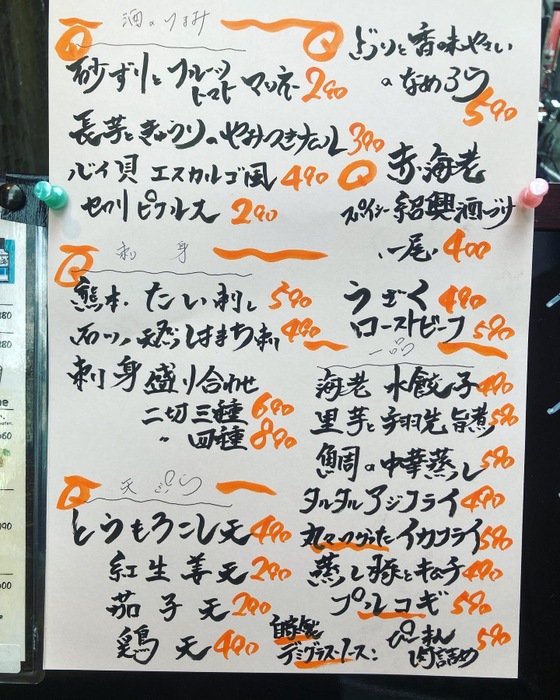 酒のつまみ
砂ずりとフルーツトマト マリネ 290
長芋ときゅうりのやみつきナムル 390
バイ貝 エスカルゴ風 490
セロリ ピクルス 290
刺身
熊本 たい刺し 590
天然はまち刺 490
刺身盛り合わせ
二切三種 690
〃 四種 890
天ぷら
とうもろこし天 490
紅生姜天 290
茄子天 290
鶏天 490
ぶりと香味やさい
のなめろう
590
赤海老
スパイシー紹興酒づけ
一尾 400
うざく 490
ローストビーフ 590
一品
海老 水餃子 490
里芋と手羽先 旨煮 590
鯛の中華蒸し 590
タルタルアジフライ 490
丸々つかったイカフライ 590
蒸し豚とキムチ 490
プルコギ 590
自家製
デミグラスソース:
ぴーまん
肉詰め 590